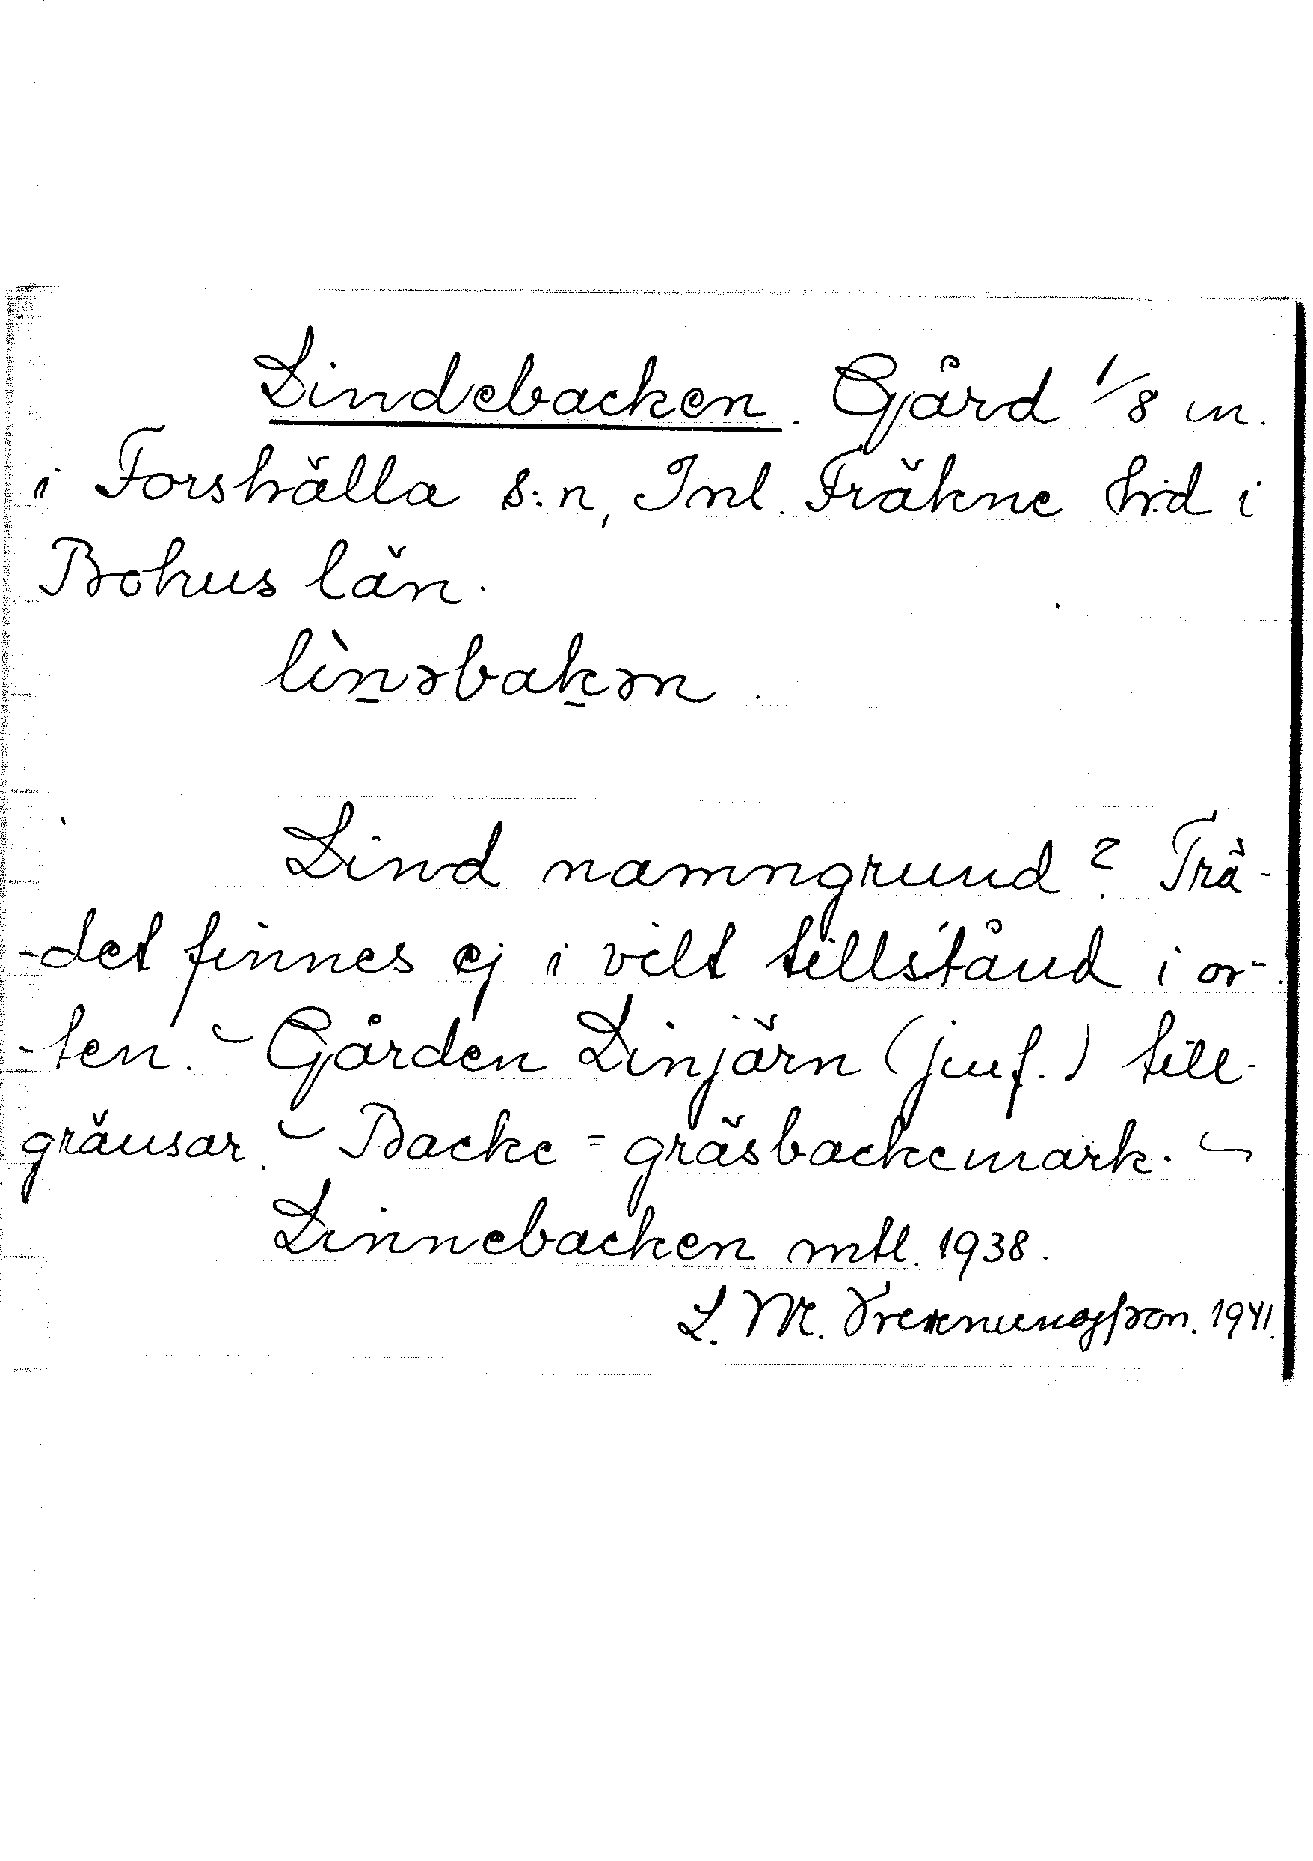 Lindebacken. Gård 1/8 m.
i Forshälla s:n, Inl. Fräkne hd i
Bohus län.
lìnəbakən.
Lind namngrund? Trä-
-det finnes ej i vilt tillstånd i or-
-ten. - Gården Linjärn (jmf.) till-
gränsar. - Backe = gräsbackemark. -
Linnebacken mtl. 1938.
L. M. 1941.